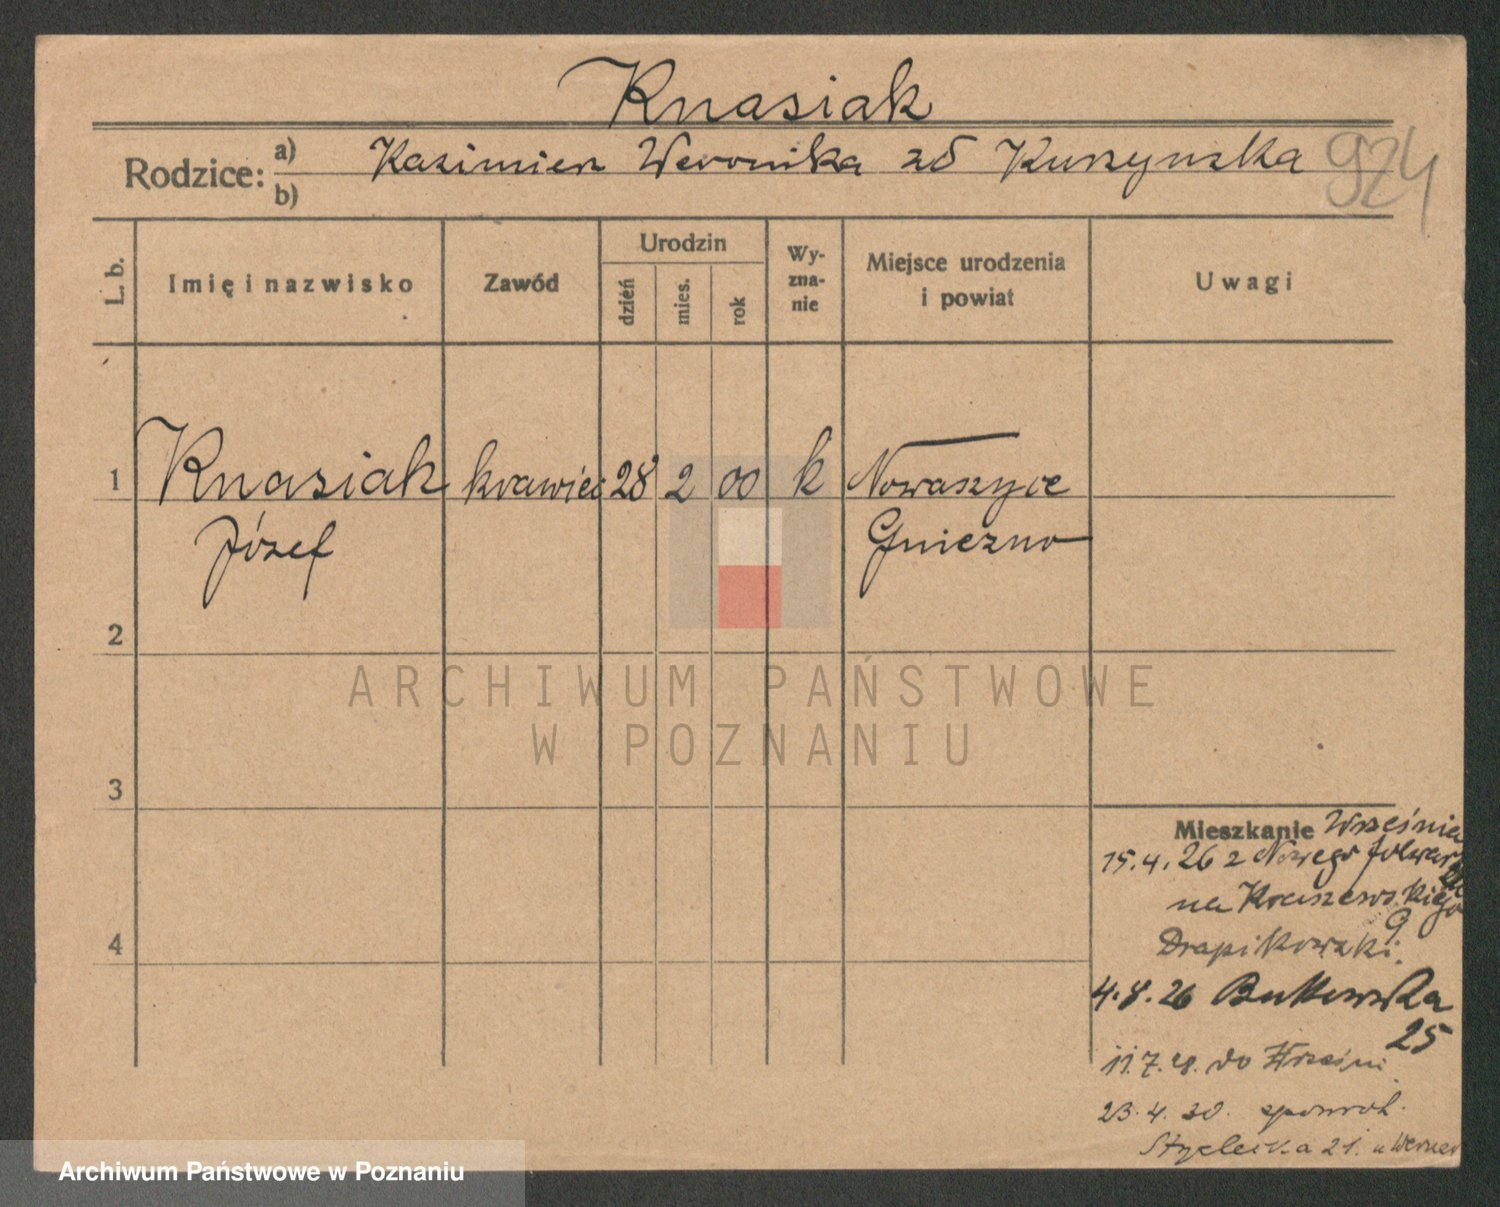 Knasiak
Rodzice: a) Kazimierz Weronika zd Kurzynska 924
b)
L. b. Imię i nazwisko Zawód Urodzin dzień mies. rok Wy-zna-nie Miejsce urodzenia i powiat Uwagi
1 Knasiak krawiec 28 2 00 k Nowaszyce
Józef Gniezno
2
3
4
Mieszkanie Września
15.4.26 z Nowego folwar
na Kraszewskiego
9
Drapikowski.
4.8.26
25
11.7.28. do Wrześni
23.4.30.
21. u Werner
ARCHIWUM PAŃSTWOWE
W POZNANIU
Archiwum Państwowe w Poznaniu